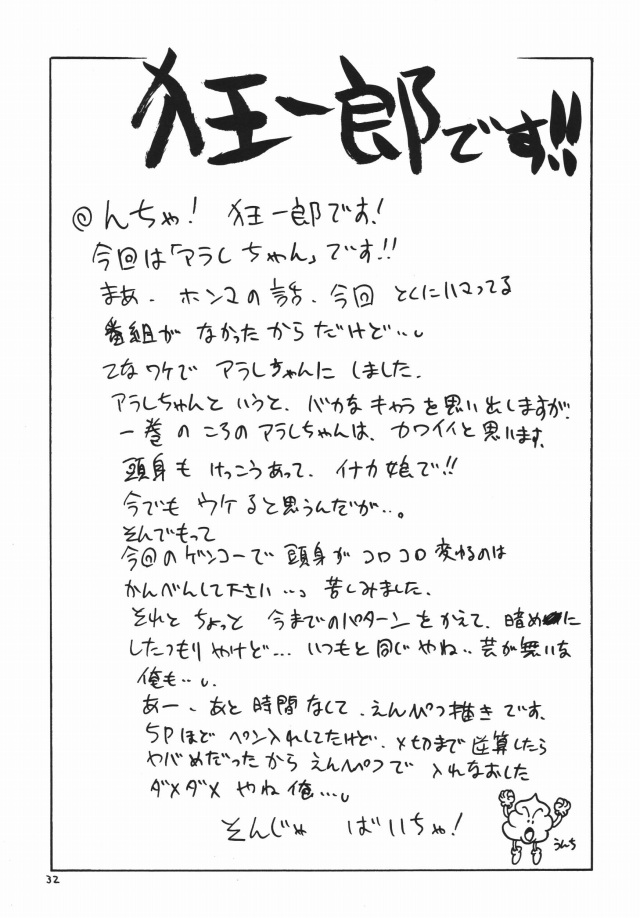 狂一郎です!!
@んちゃ! 狂一郎です!
今回は「アラレちゃん」です!!
まあ、ホンマの話、今回 とくにハマってる
番組が なかったからだけど…。
てなワケで アラレちゃんに しました。
アラレちゃんと いうと、バカな キャラを思い出しますが、
一巻の ころのアラレちゃんは、カワイイと思います。
頭身も けっこうあって、イナカ娘で!!
今でも ウケると思うんだが…。
そんでもって
今回のゲンコーで 頭身が コロコロ 変わるのは
かんべんして下さい…。苦しみました。
それと ちょっと 今までのパターンをかえて、暗めに
したつもり やけど… いつもと同じやね… 芸が無いな
俺も…。
あー、あと 時間なして、えんぴつ描きです。
5Pほど ペン入れしてたけど、〆切まで 逆算したら
ヤバめだったから えんぴつで 入れなおした
ダメダメ やね 俺…。
そんじゃ ばいちゃ!
うんち
32